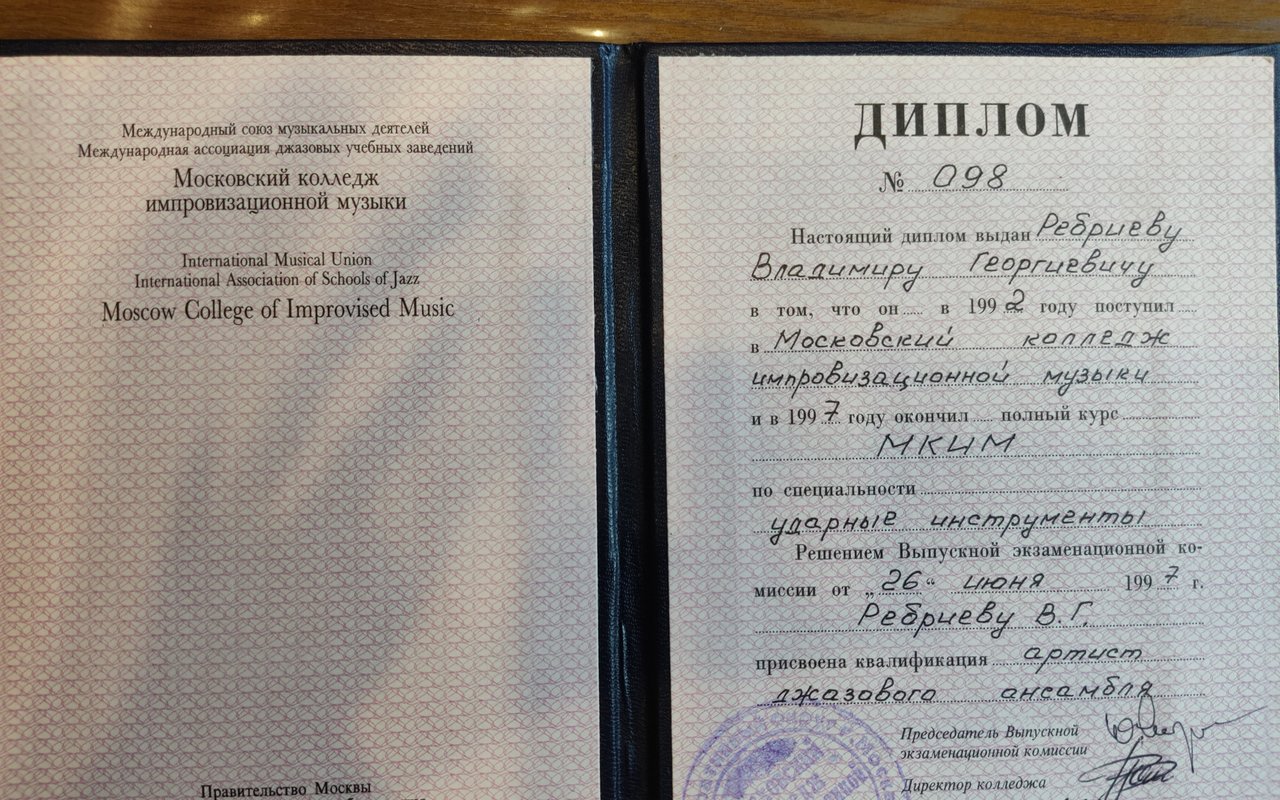 Международный союз музыкальных деятелей
Международная ассоциация джазовых учебных заведений
Московский колледж
импровизационной музыки
International Musical Union
International Association of Schools of Jazz
Moscow College of Improvised Music
Правительство Москвы
ДИПЛОМ
№ 098
Настоящий диплом выдан Ребриеву
Владимиру Георгиевичу
в том, что он в 1992 году поступил
в Московский колледж
импровизационной музыки
и в 1997 году окончил полный курс
МКИМ
по специальности
ударные инструменты
Решением Выпускной экзаменационной ко-
миссии от „26“ июня 1997 г.
Ребриеву В.Г.
присвоена квалификация артист
джазового ансамбля
Председатель Выпускной
экзаменационной комиссии
Директор колледжа